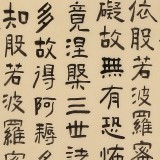 依般若波羅蜜
礙故無有恐怖
竟涅槃三世諸
多故得阿耨多
知般若波羅蜜